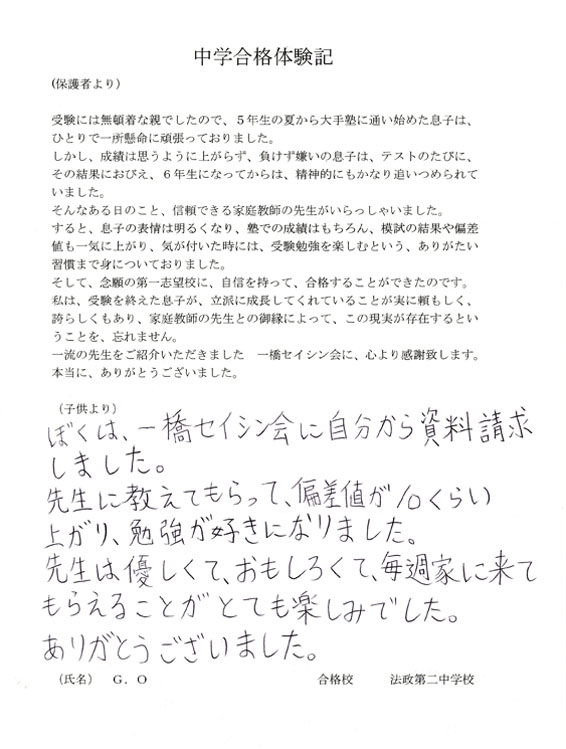 中学合格体験記
(保護者より)
受験には無頓着な親でしたので、５年生の夏から大手塾に通い始めた息子は、
ひとりで一所懸命に頑張っておりました。
しかし、成績は思うように上がらず、負けず嫌いの息子は、テストのたびに、
その結果におびえ、６年生になってからは、精神的にもかなり追いつめられて
いました。
そんなある日のこと、信頼できる家庭教師の先生がいらっしゃいました。
すると、息子の表情は明るくなり、塾での成績はもちろん、模試の結果や偏差
値も一気に上がり、気が付いた時には、受験勉強を楽しむという、ありがたい
習慣まで身についておりました。
そして、念願の第一志望校に、自信を持って、合格することができたのです。
私は、受験を終えた息子が、立派に成長してくれていることが実に頼もしく、
誇らしくもあり、家庭教師の先生との御縁によって、この現実が存在するとい
うことを、忘れません。
一流の先生をご紹介いただきました　一橋セイシン会に、心より感謝致します。
本当に、ありがとうございました。
（子供より）
ぼくは、一橋セイシン会に自分から資料請求
しました。
先生に教えてもらって、偏差値が10くらい
上がり、勉強が好きになりました。
先生は優しくて、おもしろくて、毎週家に来て
もらえることがとても楽しみでした。
ありがとうございました。
（氏名）　Ｇ．Ｏ　合格校　法政第二中学校